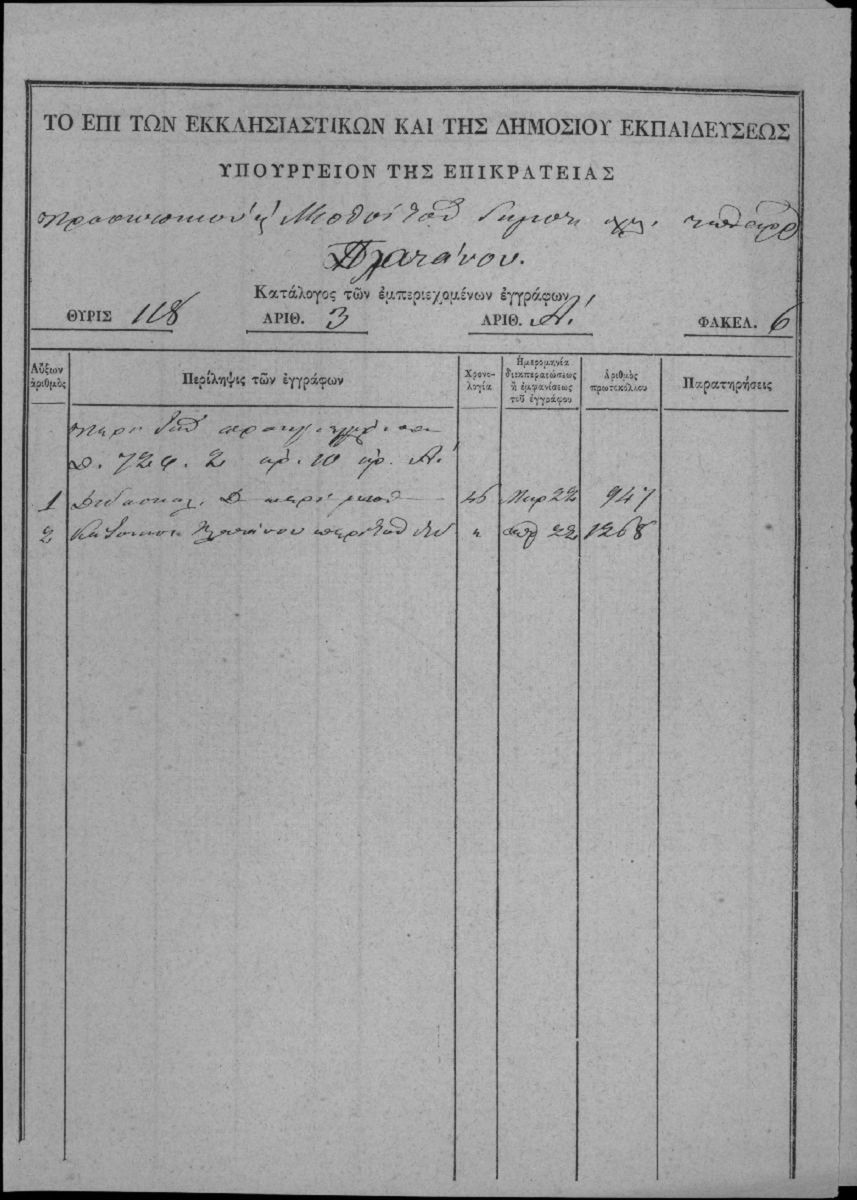 ΤΟ ΕΠΙ ΤΩΝ ΕΚΚΛΗΣΙΑΣΤΙΚΩΝ ΚΑΙ ΤΗΣ ΔΗΜΟΣΙΟΥ ΕΚΠΑΙΔΕΥΣΕΩΣ
ΥΠΟΥΡΓΕΙΟΝ ΤΗΣ ΕΠΙΚΡΑΤΕΙΑΣ
Πλατάνου.
Κατάλογος τῶν ἐμπεριεχομένων ἐγγράφων
ΘΥΡΙΣ 118 ΑΡΙΘ. 3 ΑΡΙΘ. Α΄ ΦΑΚΕΛ. 6
Αὔξων ἀριθμὸς Περίληψις τῶν ἐγγράφων Χρονολογία Ἡμερομηνία διεκπεραιώσεως ἢ ἐμφανίσεως τοῦ ἐγγράφου Ἀριθμὸς πρωτοκόλλου Παρατηρήσεις
περὶ τοῦ
Θ. 72 φ. 2 ἀρ. 10 ἀρ. Α΄
1 Διδάσκαλ. περὶ μισθ 46 Μαρ 22 947
2 Κάτοικοι Πλατάνου περὶ τοῦ " 22 1268